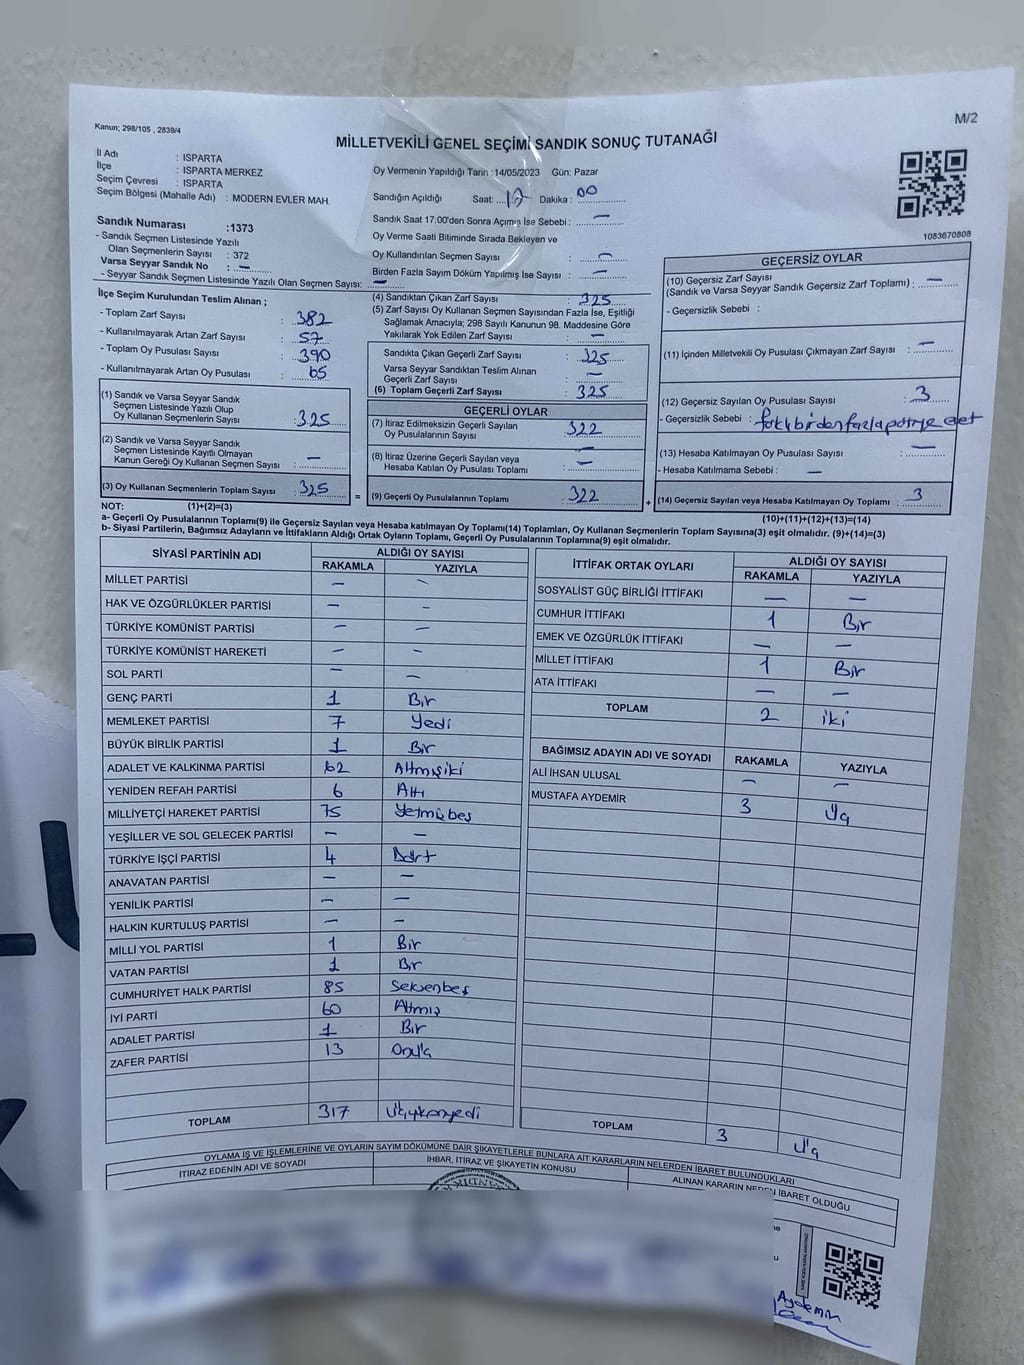 Kanun; 298/105 , 2839/4
M/2
MİLLETVEKİLİ GENEL SEÇİMİ SANDIK SONUÇ TUTANAĞI
İl Adı : ISPARTA
İlçe : ISPARTA MERKEZ
Seçim Çevresi : ISPARTA
Seçim Bölgesi (Mahalle Adı) : MODERN EVLER MAH.
Oy Vermenin Yapıldığı Tarih :14/05/2023 Gün: Pazar
Sandığın Açıldığı Saat: Dakika : 00
Sandık Saat 17:00'den Sonra Açımış İse Sebebi : —
Oy Verme Saati Bitiminde Sırada Bekleyen ve
Oy Kullandırılan Seçmen Sayısı : —
Birden Fazla Sayım Döküm Yapılmış İse Sayısı : —
Sandık Numarası :1373
- Sandık Seçmen Listesinde Yazılı
Olan Seçmenlerin Sayısı : 372
Varsa Seyyar Sandık No : —
- Seyyar Sandık Seçmen Listesinde Yazılı Olan Seçmen Sayısı: —
1083670808
İlçe Seçim Kurulundan Teslim Alınan ;
- Toplam Zarf Sayısı : 382
- Kullanılmayarak Artan Zarf Sayısı : 57
- Toplam Oy Pusulası Sayısı : 390
- Kullanılmayarak Artan Oy Pusulası : 65
(1) Sandık ve Varsa Seyyar Sandık
Seçmen Listesinde Yazılı Olup
Oy Kullanan Seçmenlerin Sayısı : 325
(2) Sandık ve Varsa Seyyar Sandık
Seçmen Listesinde Kayıtlı Olmayan
Kanun Gereği Oy Kullanan Seçmen Sayısı : —
(3) Oy Kullanan Seçmenlerin Toplam Sayısı : 325
(4) Sandıktan Çıkan Zarf Sayısı : 325
(5) Zarf Sayısı Oy Kullanan Seçmen Sayısından Fazla İse, Eşitliği
Sağlamak Amacıyla; 298 Sayılı Kanunun 98. Maddesine Göre
Yakılarak Yok Edilen Zarf Sayısı : —
Sandıkta Çıkan Geçerli Zarf Sayısı : 325
Varsa Seyyar Sandıktan Teslim Alınan
Geçerli Zarf Sayısı : —
(6) Toplam Geçerli Zarf Sayısı : 325
GEÇERLİ OYLAR
(7) İtiraz Edilmeksizin Geçerli Sayılan
Oy Pusulalarının Sayısı : 322
(8) İtiraz Üzerine Geçerli Sayılan veya
Hesaba Katılan Oy Pusulası Toplamı : —
= (9) Geçerli Oy Pusulalarının Toplamı : 322
GEÇERSİZ OYLAR
(10) Geçersiz Zarf Sayısı
(Sandık ve Varsa Seyyar Sandık Geçersiz Zarf Toplamı) : —
- Geçersizlik Sebebi :
(11) İçinden Milletvekili Oy Pusulası Çıkmayan Zarf Sayısı : —
(12) Geçersiz Sayılan Oy Pusulası Sayısı : 3
- Geçersizlik Sebebi : birden fazla partiye evet
(13) Hesaba Katılmayan Oy Pusulası Sayısı : —
- Hesaba Katılmama Sebebi : —
+ (14) Geçersiz Sayılan veya Hesaba Katılmayan Oy Toplamı : 3
NOT: (1)+(2)=(3)
(10)+(11)+(12)+(13)=(14)
a- Geçerli Oy Pusulalarının Toplamı(9) ile Geçersiz Sayılan veya Hesaba katılmayan Oy Toplamı(14) Toplamları, Oy Kullanan Seçmenlerin Toplam Sayısına(3) eşit olmalıdır. (9)+(14)=(3)
b- Siyasi Partilerin, Bağımsız Adayların ve İttifakların Aldığı Ortak Oyların Toplamı, Geçerli Oy Pusulalarının Toplamına(9) eşit olmalıdır.
SİYASİ PARTİNİN ADI ALDIĞI OY SAYISI
RAKAMLA YAZIYLA
MİLLET PARTİSİ — —
HAK VE ÖZGÜRLÜKLER PARTİSİ — —
TÜRKİYE KOMÜNİST PARTİSİ — —
TÜRKİYE KOMÜNİST HAREKETİ — —
SOL PARTİ — —
GENÇ PARTİ 1 Bir
MEMLEKET PARTİSİ 7 Yedi
BÜYÜK BİRLİK PARTİSİ 1 Bir
ADALET VE KALKINMA PARTİSİ 62 Altmışiki
YENİDEN REFAH PARTİSİ 6 Altı
MİLLİYETÇİ HAREKET PARTİSİ 75 Yetmişbeş
YEŞİLLER VE SOL GELECEK PARTİSİ — —
TÜRKİYE İŞÇİ PARTİSİ 4 Dört
ANAVATAN PARTİSİ — —
YENİLİK PARTİSİ — —
HALKIN KURTULUŞ PARTİSİ — —
MİLLİ YOL PARTİSİ 1 Bir
VATAN PARTİSİ 1 Bir
CUMHURİYET HALK PARTİSİ 85 Seksenbeş
İYİ PARTİ 60 Altmış
ADALET PARTİSİ 1 Bir
ZAFER PARTİSİ 13 Onüç
TOPLAM 317 Üçyüzonyedi
İTTİFAK ORTAK OYLARI ALDIĞI OY SAYISI
RAKAMLA YAZIYLA
SOSYALİST GÜÇ BİRLİĞİ İTTİFAKI — —
CUMHUR İTTİFAKI 1 Bir
EMEK VE ÖZGÜRLÜK İTTİFAKI — —
MİLLET İTTİFAKI 1 Bir
ATA İTTİFAKI — —
TOPLAM 2 iki
BAĞIMSIZ ADAYIN ADI VE SOYADI RAKAMLA YAZIYLA
ALİ İHSAN ULUSAL — —
MUSTAFA AYDEMİR 3 Üç
TOPLAM 3 Üç
OYLAMA İŞ VE İŞLEMLERİNE VE OYLARIN SAYIM DÖKÜMÜNE DAİR ŞİKAYETLERLE BUNLARA AİT KARARLARIN NELERDEN İBARET BULUNDUKLARI
İTİRAZ EDENİN ADI VE SOYADI İHBAR, İTİRAZ VE ŞİKAYETİN KONUSU ALINAN KARARIN NEDEN İBARET OLDUĞU